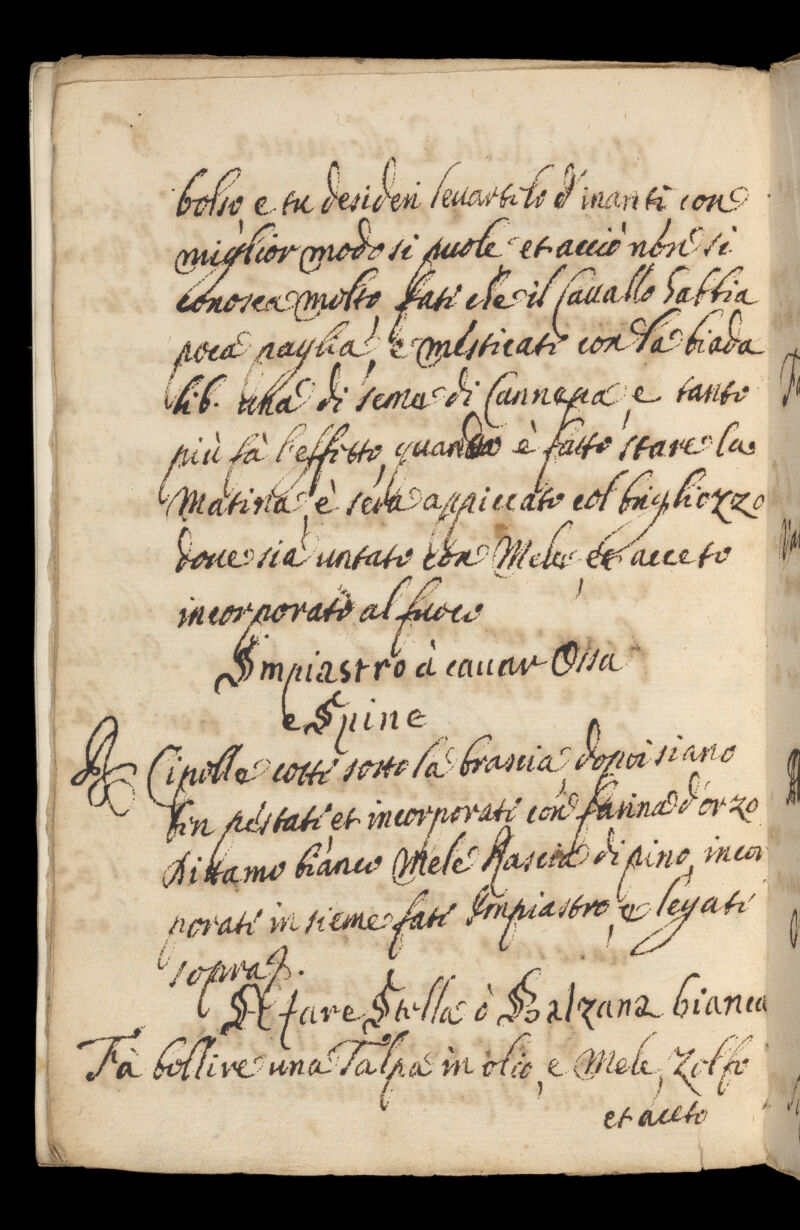 bolso, e tu desideri levartilo d'inanti, con
miglior modo si puole et acciò non si
conosca molto, fati che il Cavallo habbia
poca paglia, e misticati con la biada
lib. una di seme di Cannepa, e tanto
più fà l'effetto, quando è fatto stare la
Matina, è sera appiccato col brigliozzo
doue sia untato con Mele, et acceto
incorporato al fuoco
Impiastro à cauar Ossa
e Spine
Cipolle cotti sotto la brascia, dopoi siano
ben pestati, et incorporati con farina d'orzo
Dittamo bianco Mele Rascia di pino, incor
porati insieme fati Impiastro, e legati
sopra.
A fare Stella ò Balzana bianca
Fà bollire una Talpa in olio, e Mele, Zolfo
et aceto